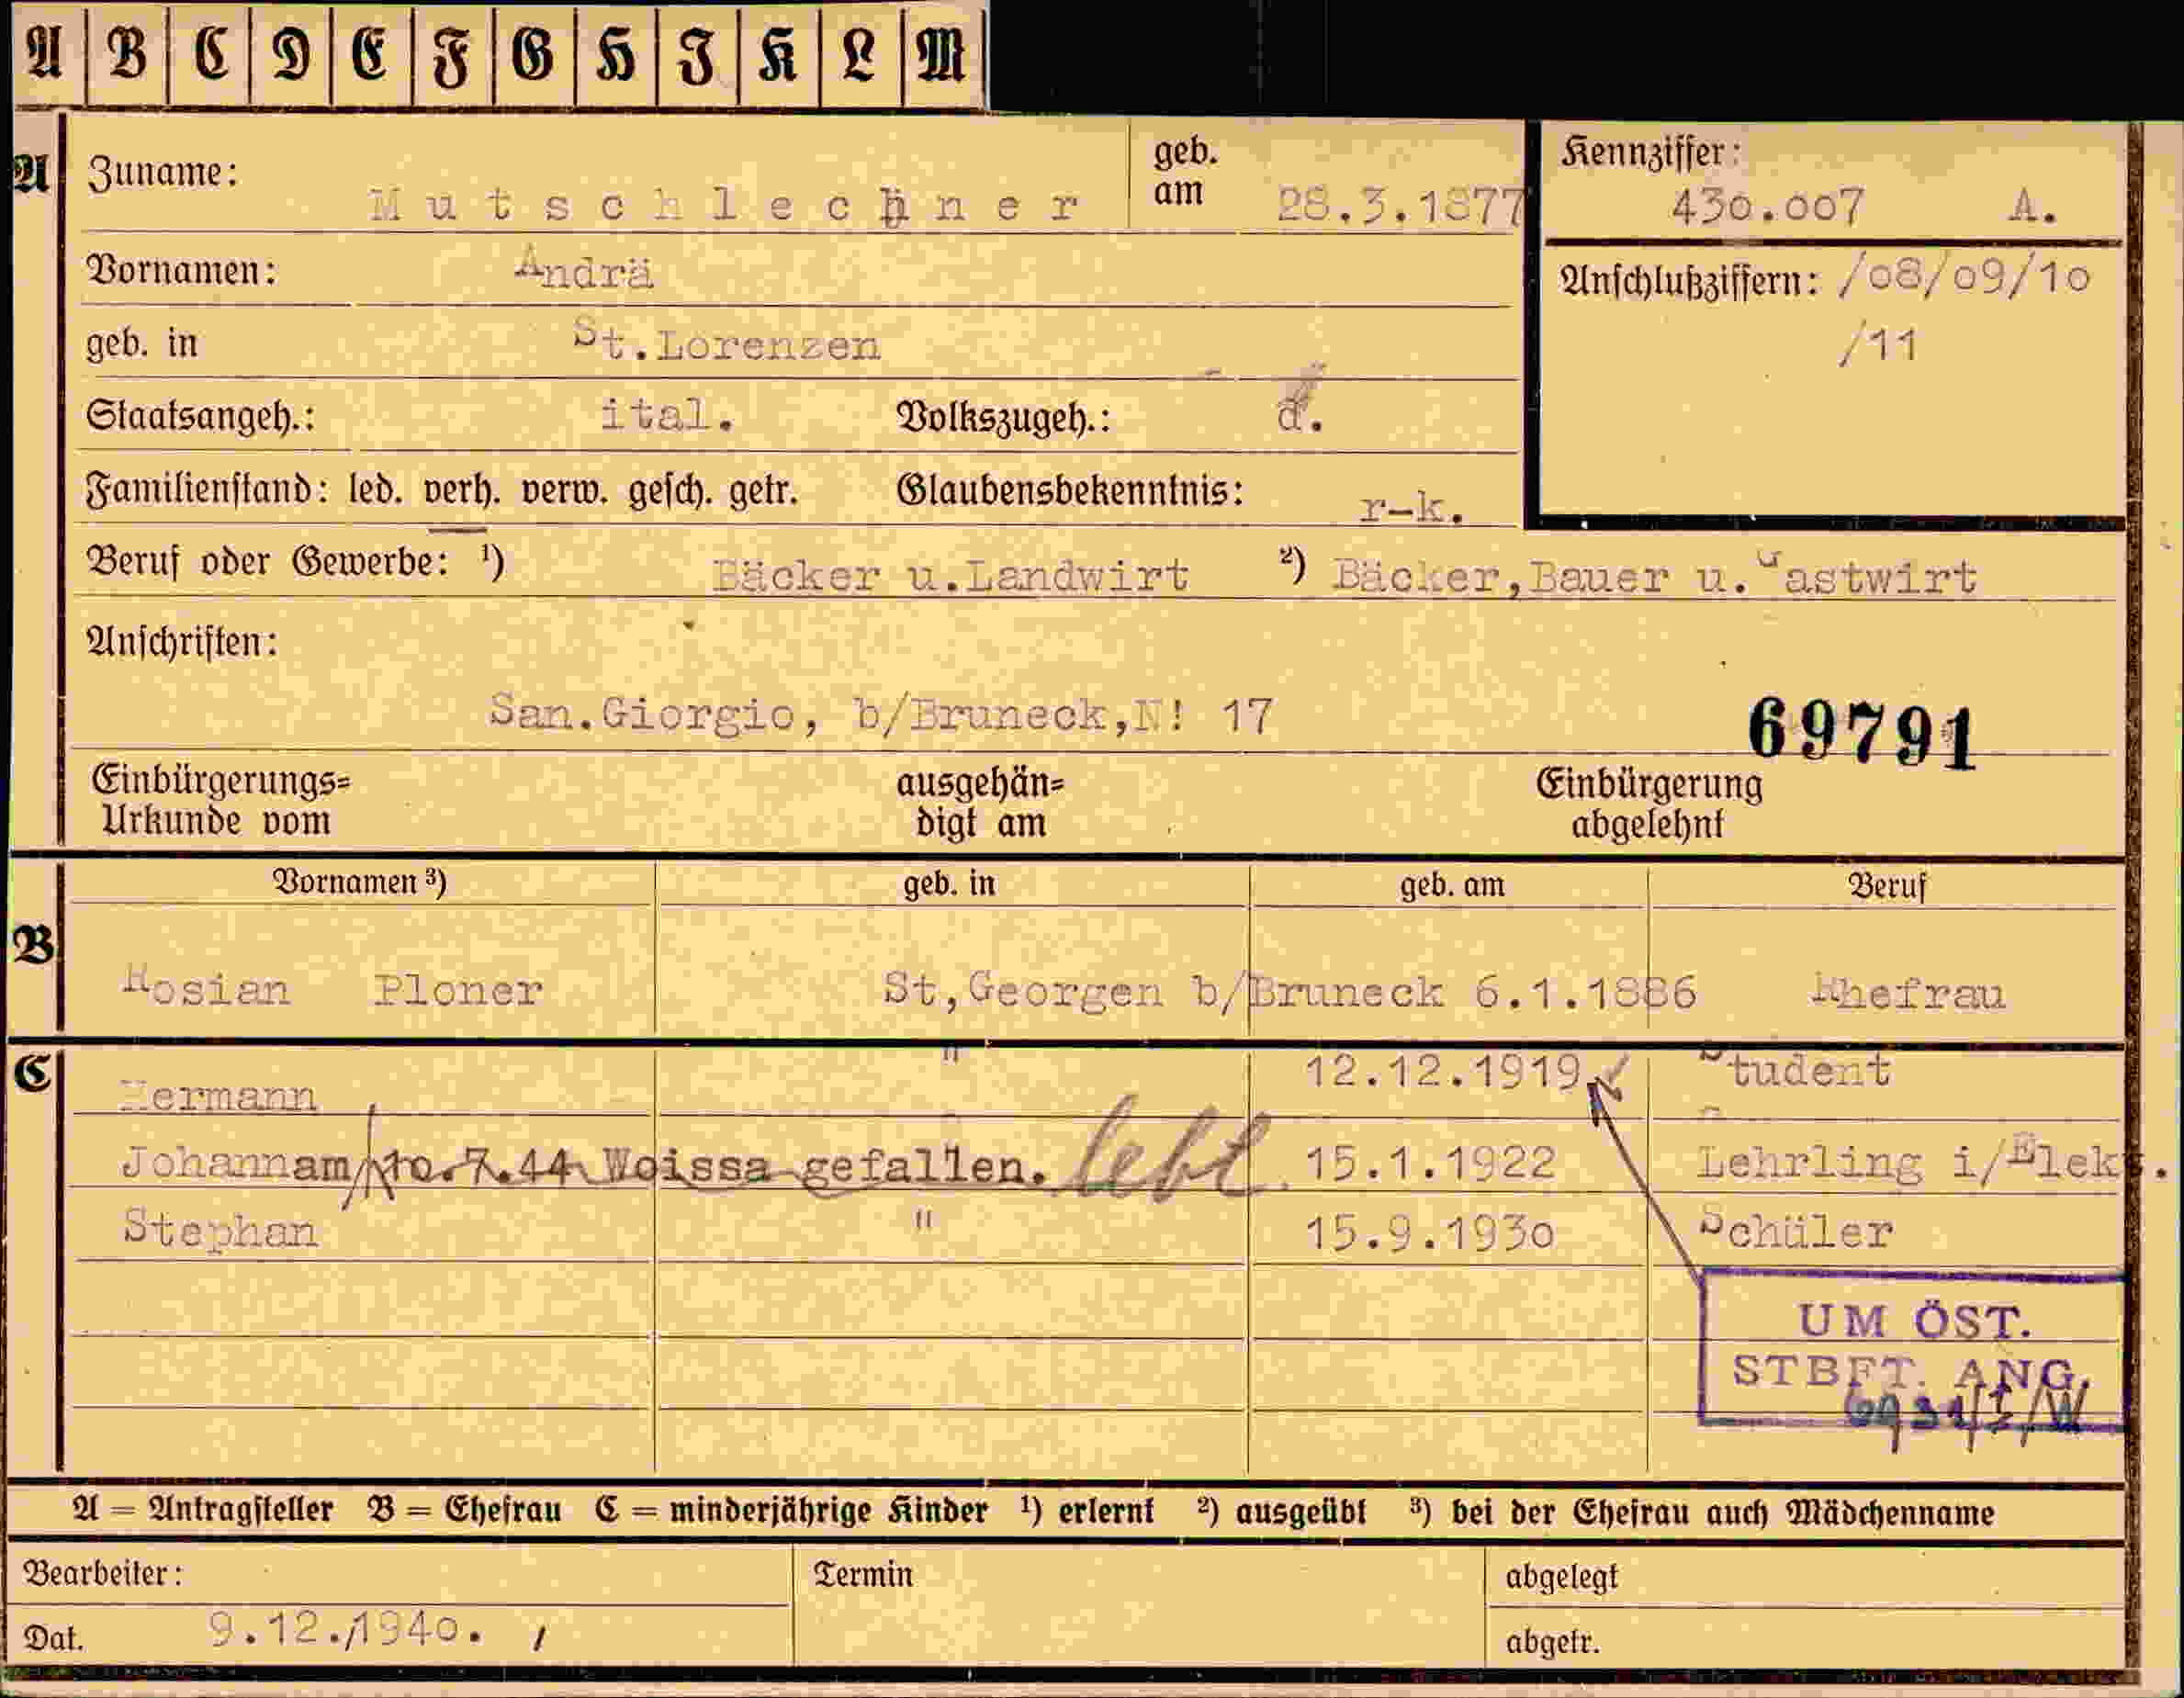 A B C D E F G H I K L M
A
Zuname: Mutschlechner geb. am 28.3.1877
Kennziffer: 430.007 A.
Vornamen: Andrä
Anschlußziffern: /08/09/10
/11
geb. in St.Lorenzen
Staatsangeh.: ital. Volkszugeh.: d.
Familienstand: led. verh. verw. gesch. getr. Glaubensbekenntnis: r-k.
Beruf oder Gewerbe: ¹) Bäcker u.Landwirt ²) Bäcker,Bauer u.Gastwirt
Anschriften:
San.Giorgio, b/Bruneck,N! 17
69791
Einbürgerungs=
Urkunde vom
ausgehän=
digt am
Einbürgerung
abgelehnt
B
Vornamen ³) geb. in geb. am Beruf
Rosian Ploner St,Georgen b/Bruneck 6.1.1886 Ehefrau
C
Hermann " 12.12.1919 Student
Johann am 10.7.44 Woissa gefallen. lebt 15.1.1922 Lehrling i/Elekt.
Stephan " 15.9.1930 Schüler
UM ÖST.
STBFT. ANG.
A = Antragsteller B = Ehefrau C = minderjährige Kinder ¹) erlernt ²) ausgeübt ³) bei der Ehefrau auch Mädchenname
Bearbeiter: Termin abgelegt
Dat. 9.12.1940. abgetr.